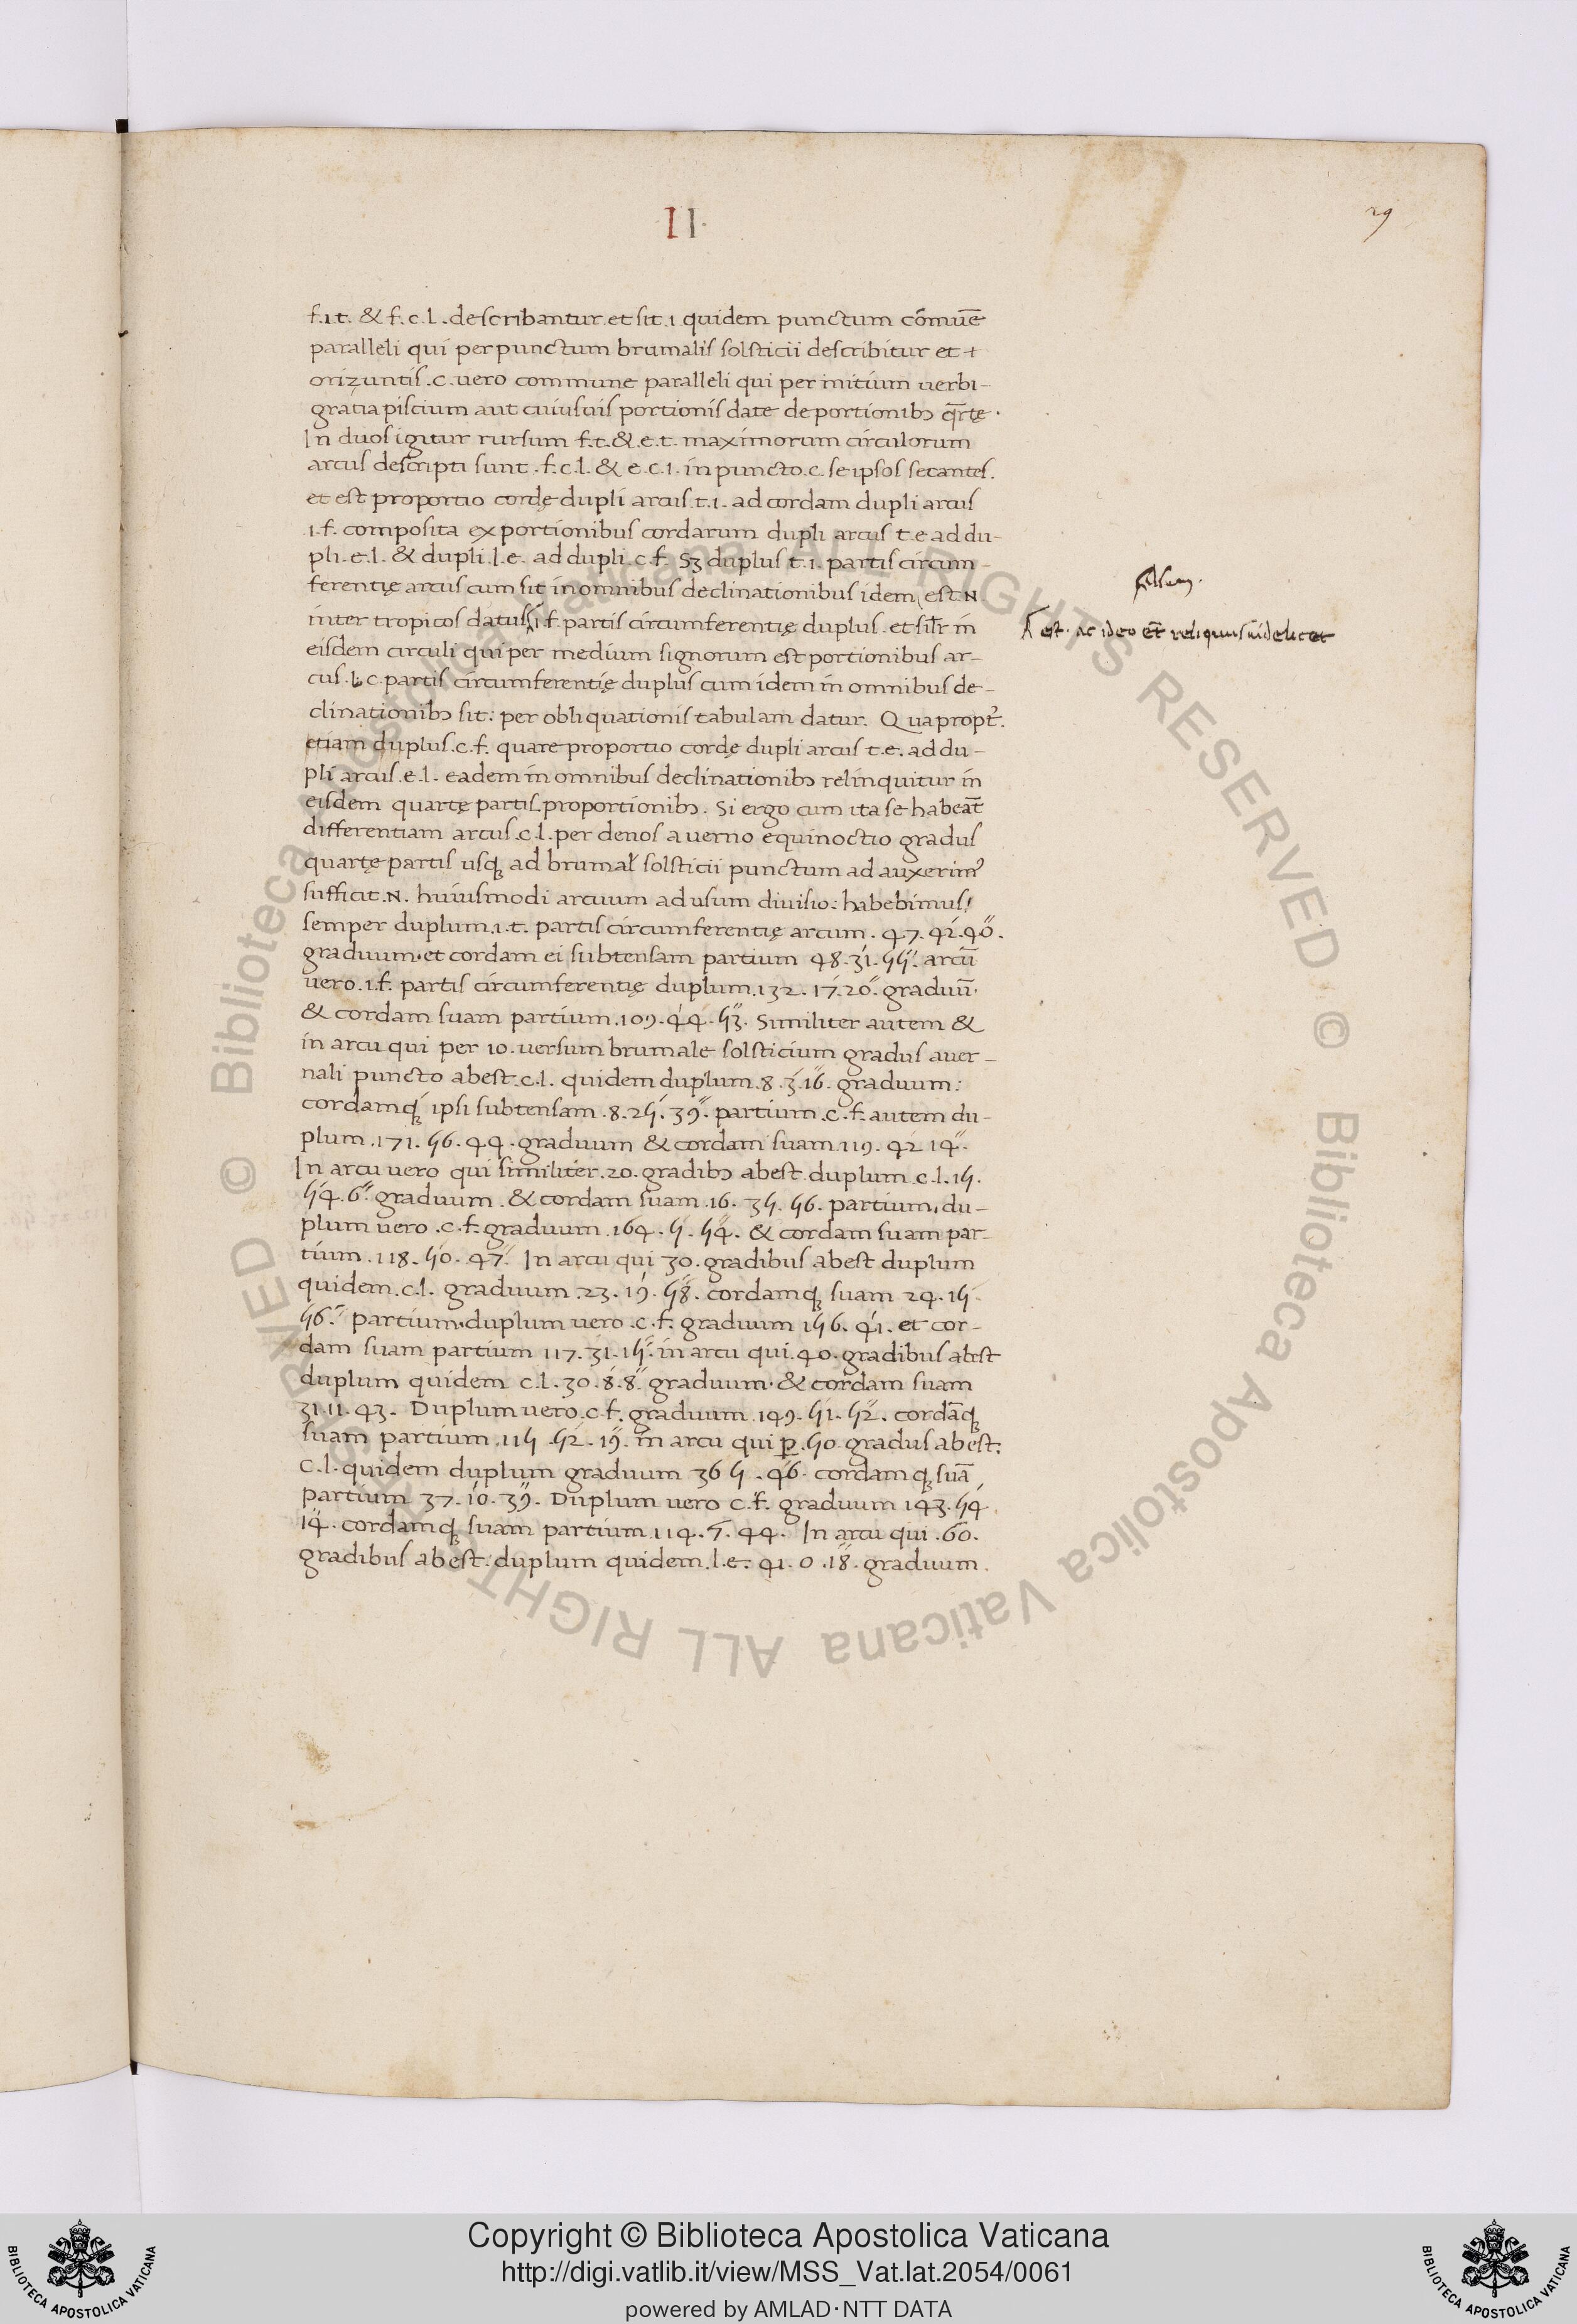 II.
29
f.i.t. & f.c.l. describantur. et sit .i. quidem punctum cōmuē
paralleli qui per punctum brumalis solsticii describitur et +
orizuntis .c. uero commune paralleli qui per initium uerbi-
gratia piscium aut cuiusuis portionis date de portionibꝫ q̄rtę.
In duos igitur rursum f.t. & .e.t. maximorum circulorum
arcus descripti sunt .f.c.l. & e.c.i. in puncto .c. se ipsos secantes.
et est proportio cordę dupli arcus .t.i. ad cordam dupli arcus
.i.f. composita ex portionibus cordarum dupli arcus t.e ad du-
pli .e.l. & dupli .l.c. ad dupli .c.f. Sꝫ duplus t.i. partis circum-
ferentię arcus cum sit in omnibus declinationibus idem est .N.
falsum.
inter tropicos datus i.f. partis circumferentię duplus. et silr in
est. ac ideo et̄ reliquus uidelicet
eisdem circuli qui per medium signorum est portionibus ar-
cus .l.c. partis circumferentię duplus cum idem in omnibus de-
clinationibꝫ sit: per obliquationis tabulam datur. Quapropt̓.
etiam duplus .c.f. quare proportio cordę dupli arcus t.e. ad du-
pli arcus .e.l. eadem in omnibus declinationibꝫ relinquitur in
eisdem quartę partis proportionibꝫ. Si ergo cum ita se habeāt
differentiam arcus .c.l. per denos a uerno equinoctio gradus
quartę partis usqꝫ ad brumał solsticii punctum ad auxerim᾿
sufficit .N. huiusmodi arcuum ad usum diuisio: habebimus
semper duplum .i.t. partis circumferentię arcum . 47. 42́. 40̋.
graduum. et cordam ei subtensam partium 48. 31́. 55̋. arcū
uero .i.f. partis circumferentię duplum .132. 17́. 20̋. graduū.
& cordam suam partium .109. 44́. 53̋. Similiter autem &
in arcu qui per 10. uersum brumale solsticium gradus auer-
nali puncto abest .c.l. quidem duplum .8. 3́. 16̋. graduum:
cordamqꝫ ipsi subtensam .8. 25́. 39̋. partium .c.f. autem du-
plum .171. 56. 44. graduum & cordam suam .119. 42 14̋.
In arcu uero qui similiter .20. gradibꝫ abest duplum c.l. 15.
54́. 6̋. graduum. & cordam suam .16. 35. 56. partium, du-
plum uero .c.f. graduum .164. 5. 54̋. & cordam suam par-
tium .118. 50. 47̋. In arcu qui 30. gradibus abest duplum
quidem .c.l. graduum .23. 19́. 58̋. cordamqꝫ suam 24. 15
56̋. partium. duplum uero .c.f. graduum 156. 41́. et cor-
dam suam partium 117. 31. 15̋. in arcu qui .40. gradibus abest
duplum quidem c.l. 30. 8́. 8̋. graduum. & cordam suam
31. 11. 43. Duplum uero .c.f. graduum .149. 51. 52̋. cordāqꝫ
suam partium .115 52́. 19̋. in arcu qui ꝑ .50 gradus abest.
c.l. quidem duplum graduum 36 5. 46́. cordamqꝫ suā
partium 37. 10́. 39̋. Duplum uero c.f. graduum 143. 54́
14̋. cordamqꝫ suam partium .114. 5́. 44. In arcu qui .60.
gradibus abest. duplum quidem .l.c. 41. 0. 18̋. graduum.
© Biblioteca Apostolica Vaticana ALL RIGHTS RESERVED © Biblioteca Apostolica Vaticana ALL RIGHTS RESERVED
Copyright © Biblioteca Apostolica Vaticana
http://digi.vatlib.it/view/MSS_Vat.lat.2054/0061
powered by AMLAD·NTT DATA
BIBLIOTECA APOSTOLICA VATICANA
BIBLIOTECA APOSTOLICA VATICANA